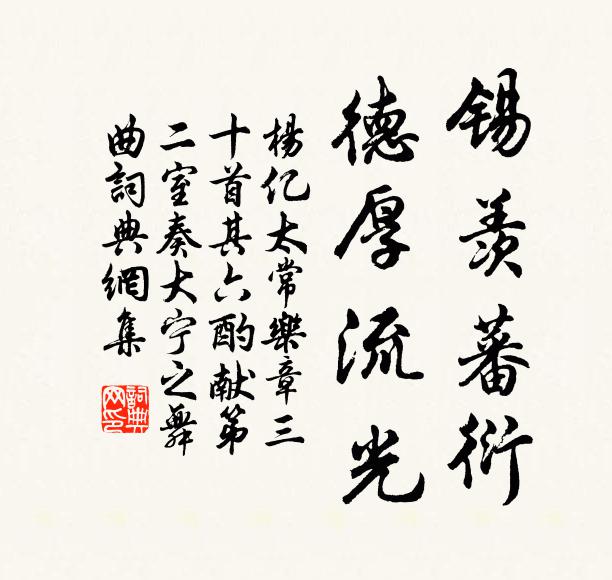 锡羡蕃衍
德厚流光
楊亿太常樂章三
十首其六酌献第
二室奏大宁之舞
曲詞典網集
詞典网印